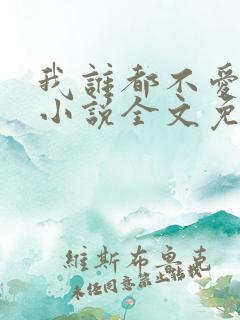 我誰都不愛
小說全文免
維斯布魯克
未经同意禁止转载